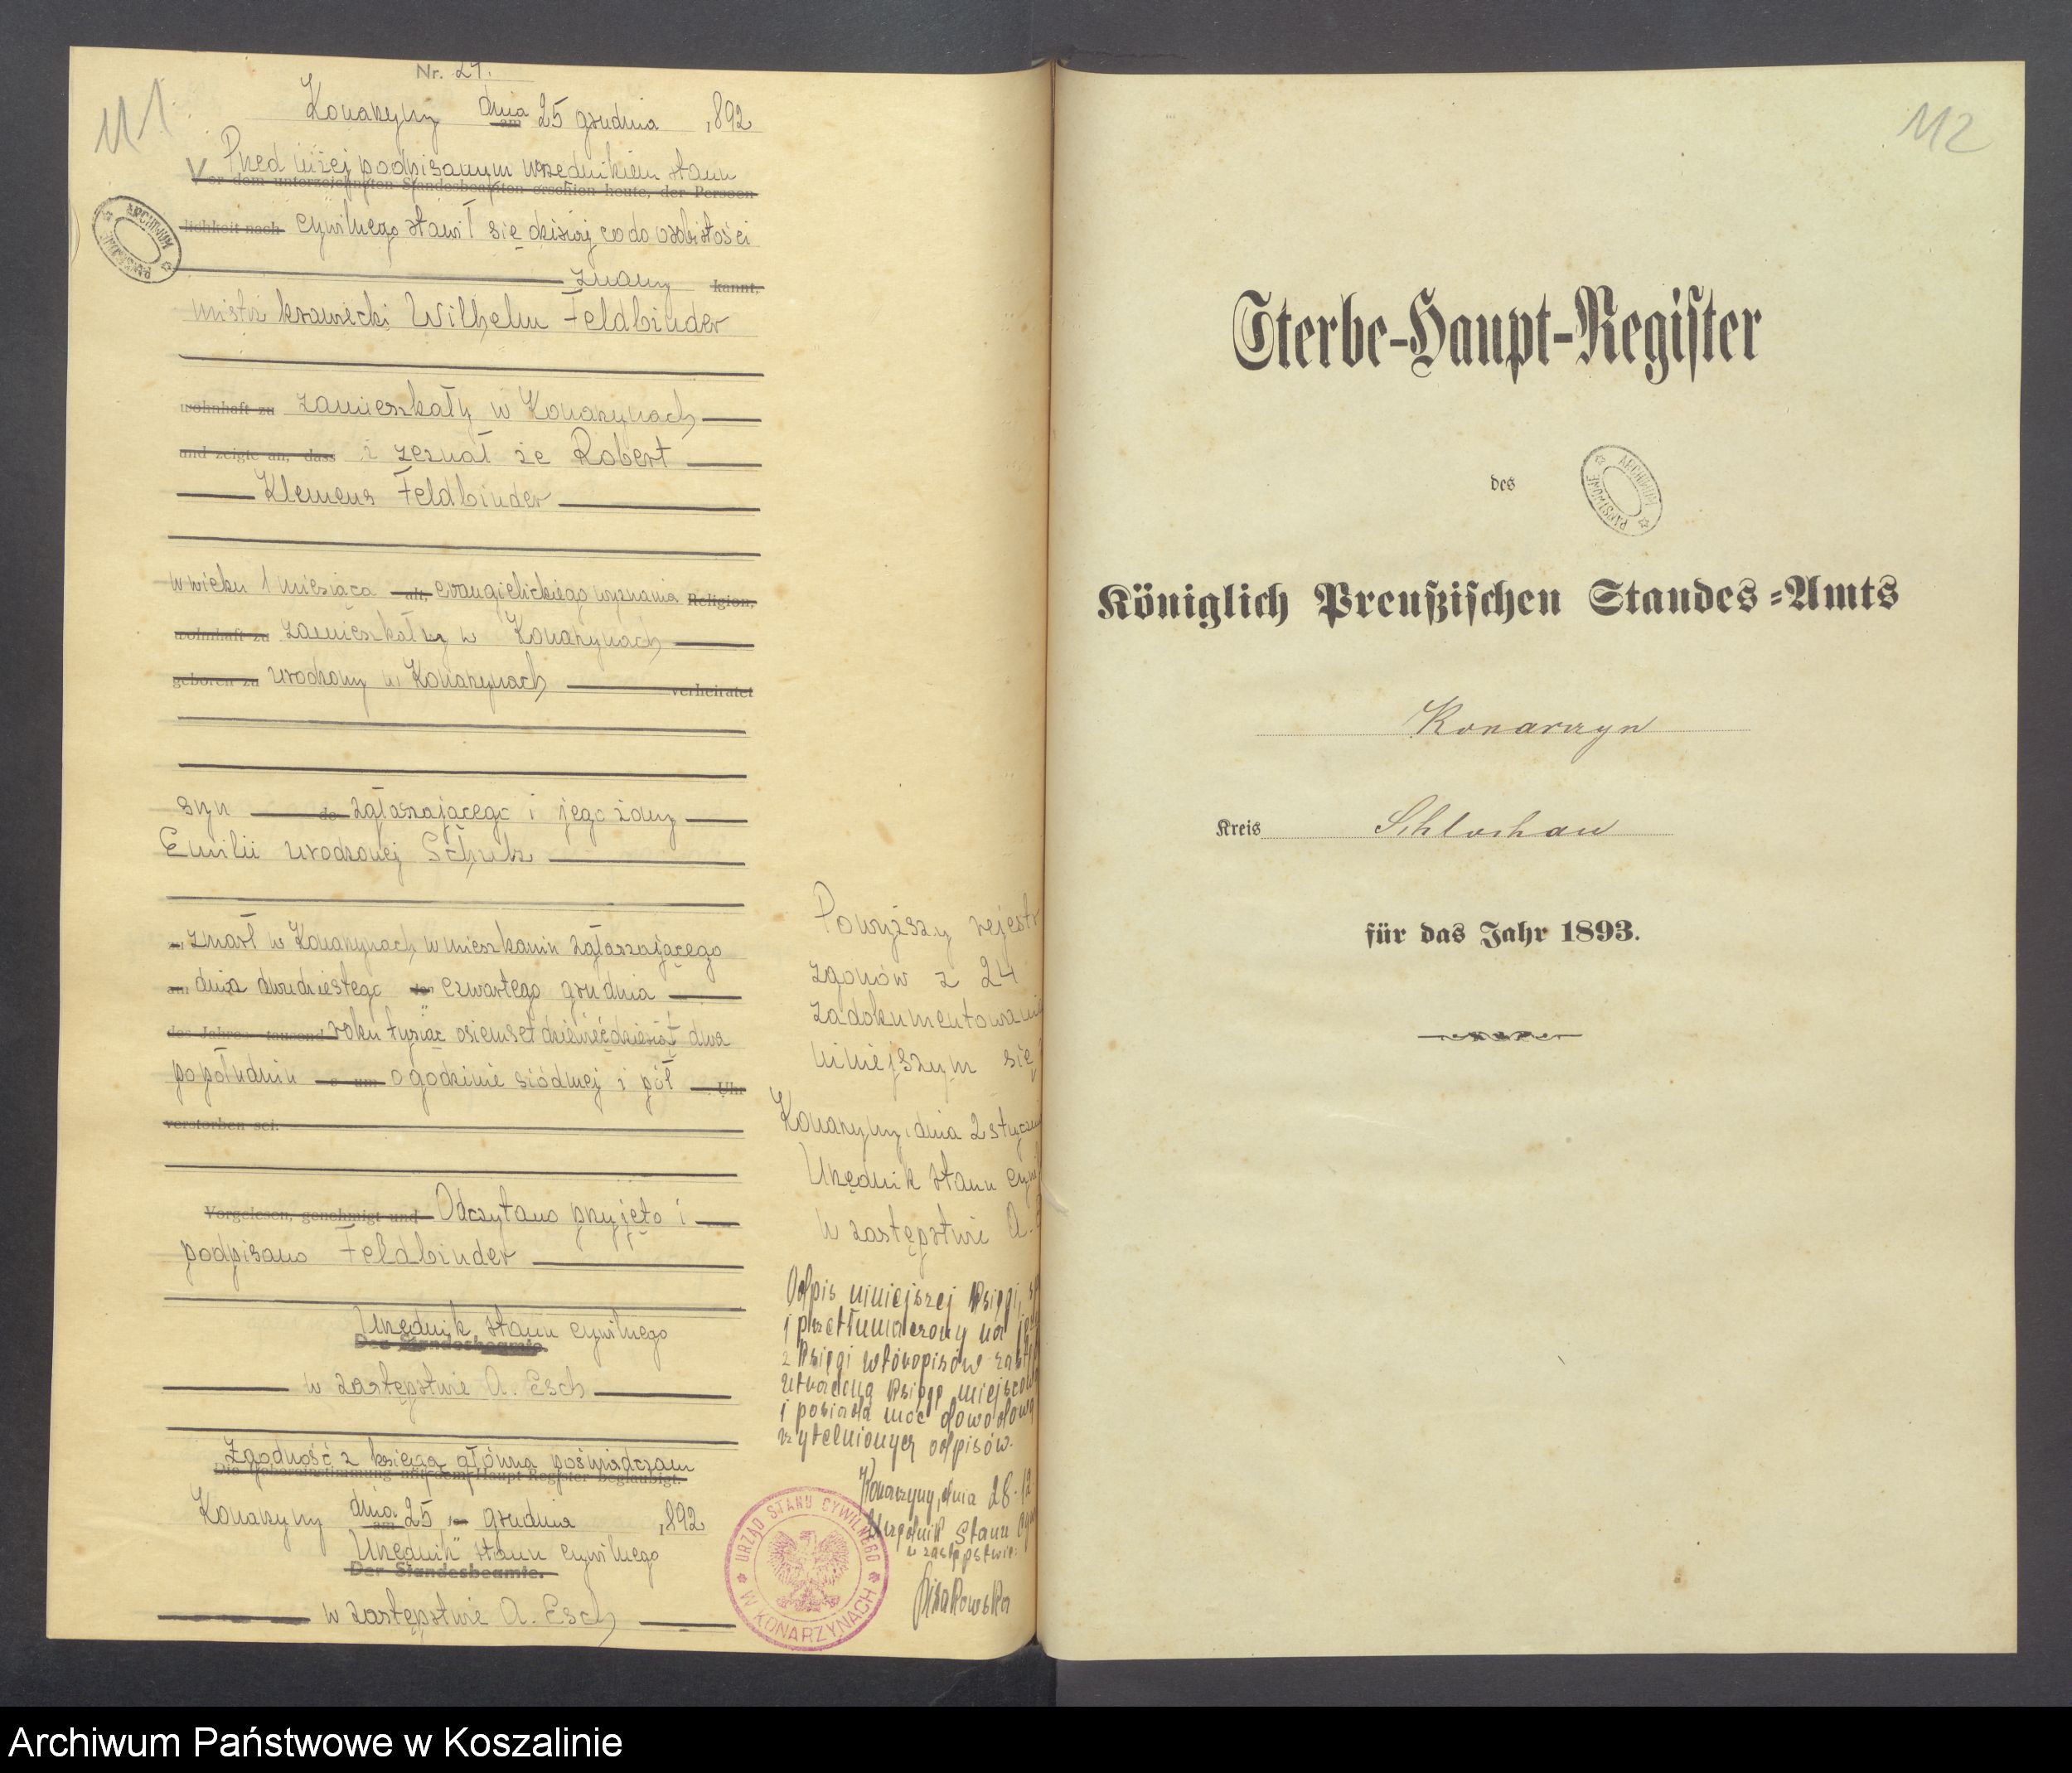 111
Nr. 24.
Konarzyny dnia am 25 grudnia 1892
Przed niżej podpisanym urzędnikiem stanu
Vor dem unterzeichneten Standesbeamten erschien heute, der Persoen-
lichkeit nach cywilnego stawił się dzisiaj co do osobistości
znany kannt,
mistrz krawiecki Wilhelm Feldbinder
wohnhaft zu zamieszkały w Konarzynach
und zeigte an, dass i zeznał że Robert
Klemens Feldbinder
w wieku 1 miesiąca alt, ewangielickiego wyznania Religion,
wohnhaft zu zamieszkały w Konarzynach
geboren zu urodzony w Konarzynach verheiratet
syn de zgłaszającego i jego żony
Emilii urodzonej Schulz
zmarł w Konarzynach w mieszkaniu zgłaszającego
am dnia dwudziestego czwartego grudnia
des Jahres tausend roku tysiąc osiemset dziewięćdziesiąt dwa
popołudniu um o godzinie siódmej i pół Uhr
verstorben sei.
Vorgelesen, genehmigt und Odczytano przyjęto i
podpisano Feldbinder
Urzędnik stanu cywilnego
Der Standesbeamte.
w zastępstwie A. Esch
Zgodność z księgą główną poświadczam
Die Uebereinstimmung mit dem Haupt-Register beglaubigt.
Konarzyny dnia am 25 grudnia 1892
Urzędnik stanu cywilnego
Der Standesbeamte.
w zastępstwie A. Esch
Powyższy rejestr
zgonów z 24
zadokumentowani
niniejszym się
Konarzyny, dnia 2 styczn
Urzędnik stanu cywi
w zastępstwie A.
Odpis niniejszej księgi,
i przetłumaczony na
z księgi wtóropisów
utraconą księgę miejscow
i posiada moc dowodową
odpisów.
Konarzyny, dnia 28. 12
Urzędnik Stanu
w zastępstwie:
URZĄD STANU CYWILNEGO
W KONARZYNACH
ARCHIWUM
PAŃSTWOWE
112
Sterbe-Haupt-Register
des
ARCHIWUM
PAŃSTWOWE
Königlich Preußischen Standes-Amts
Konarzyn
Kreis Schlochau
für das Jahr 1893.
Archiwum Państwowe w Koszalinie